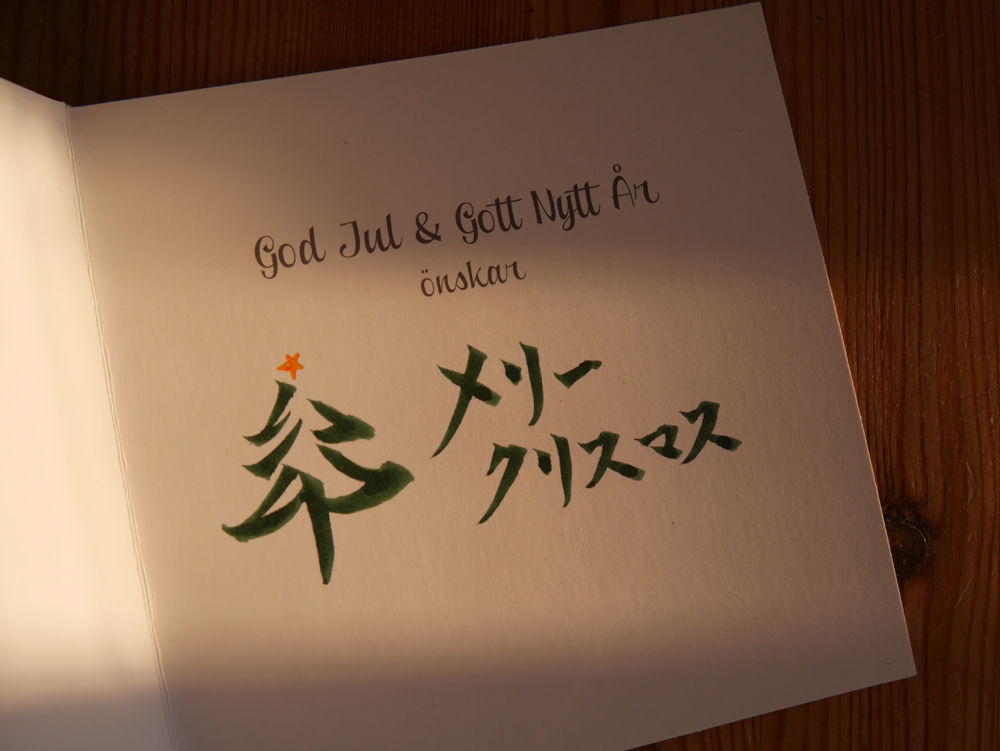 God Jul & Gott Nytt År
önskar
メリー
クリスマス